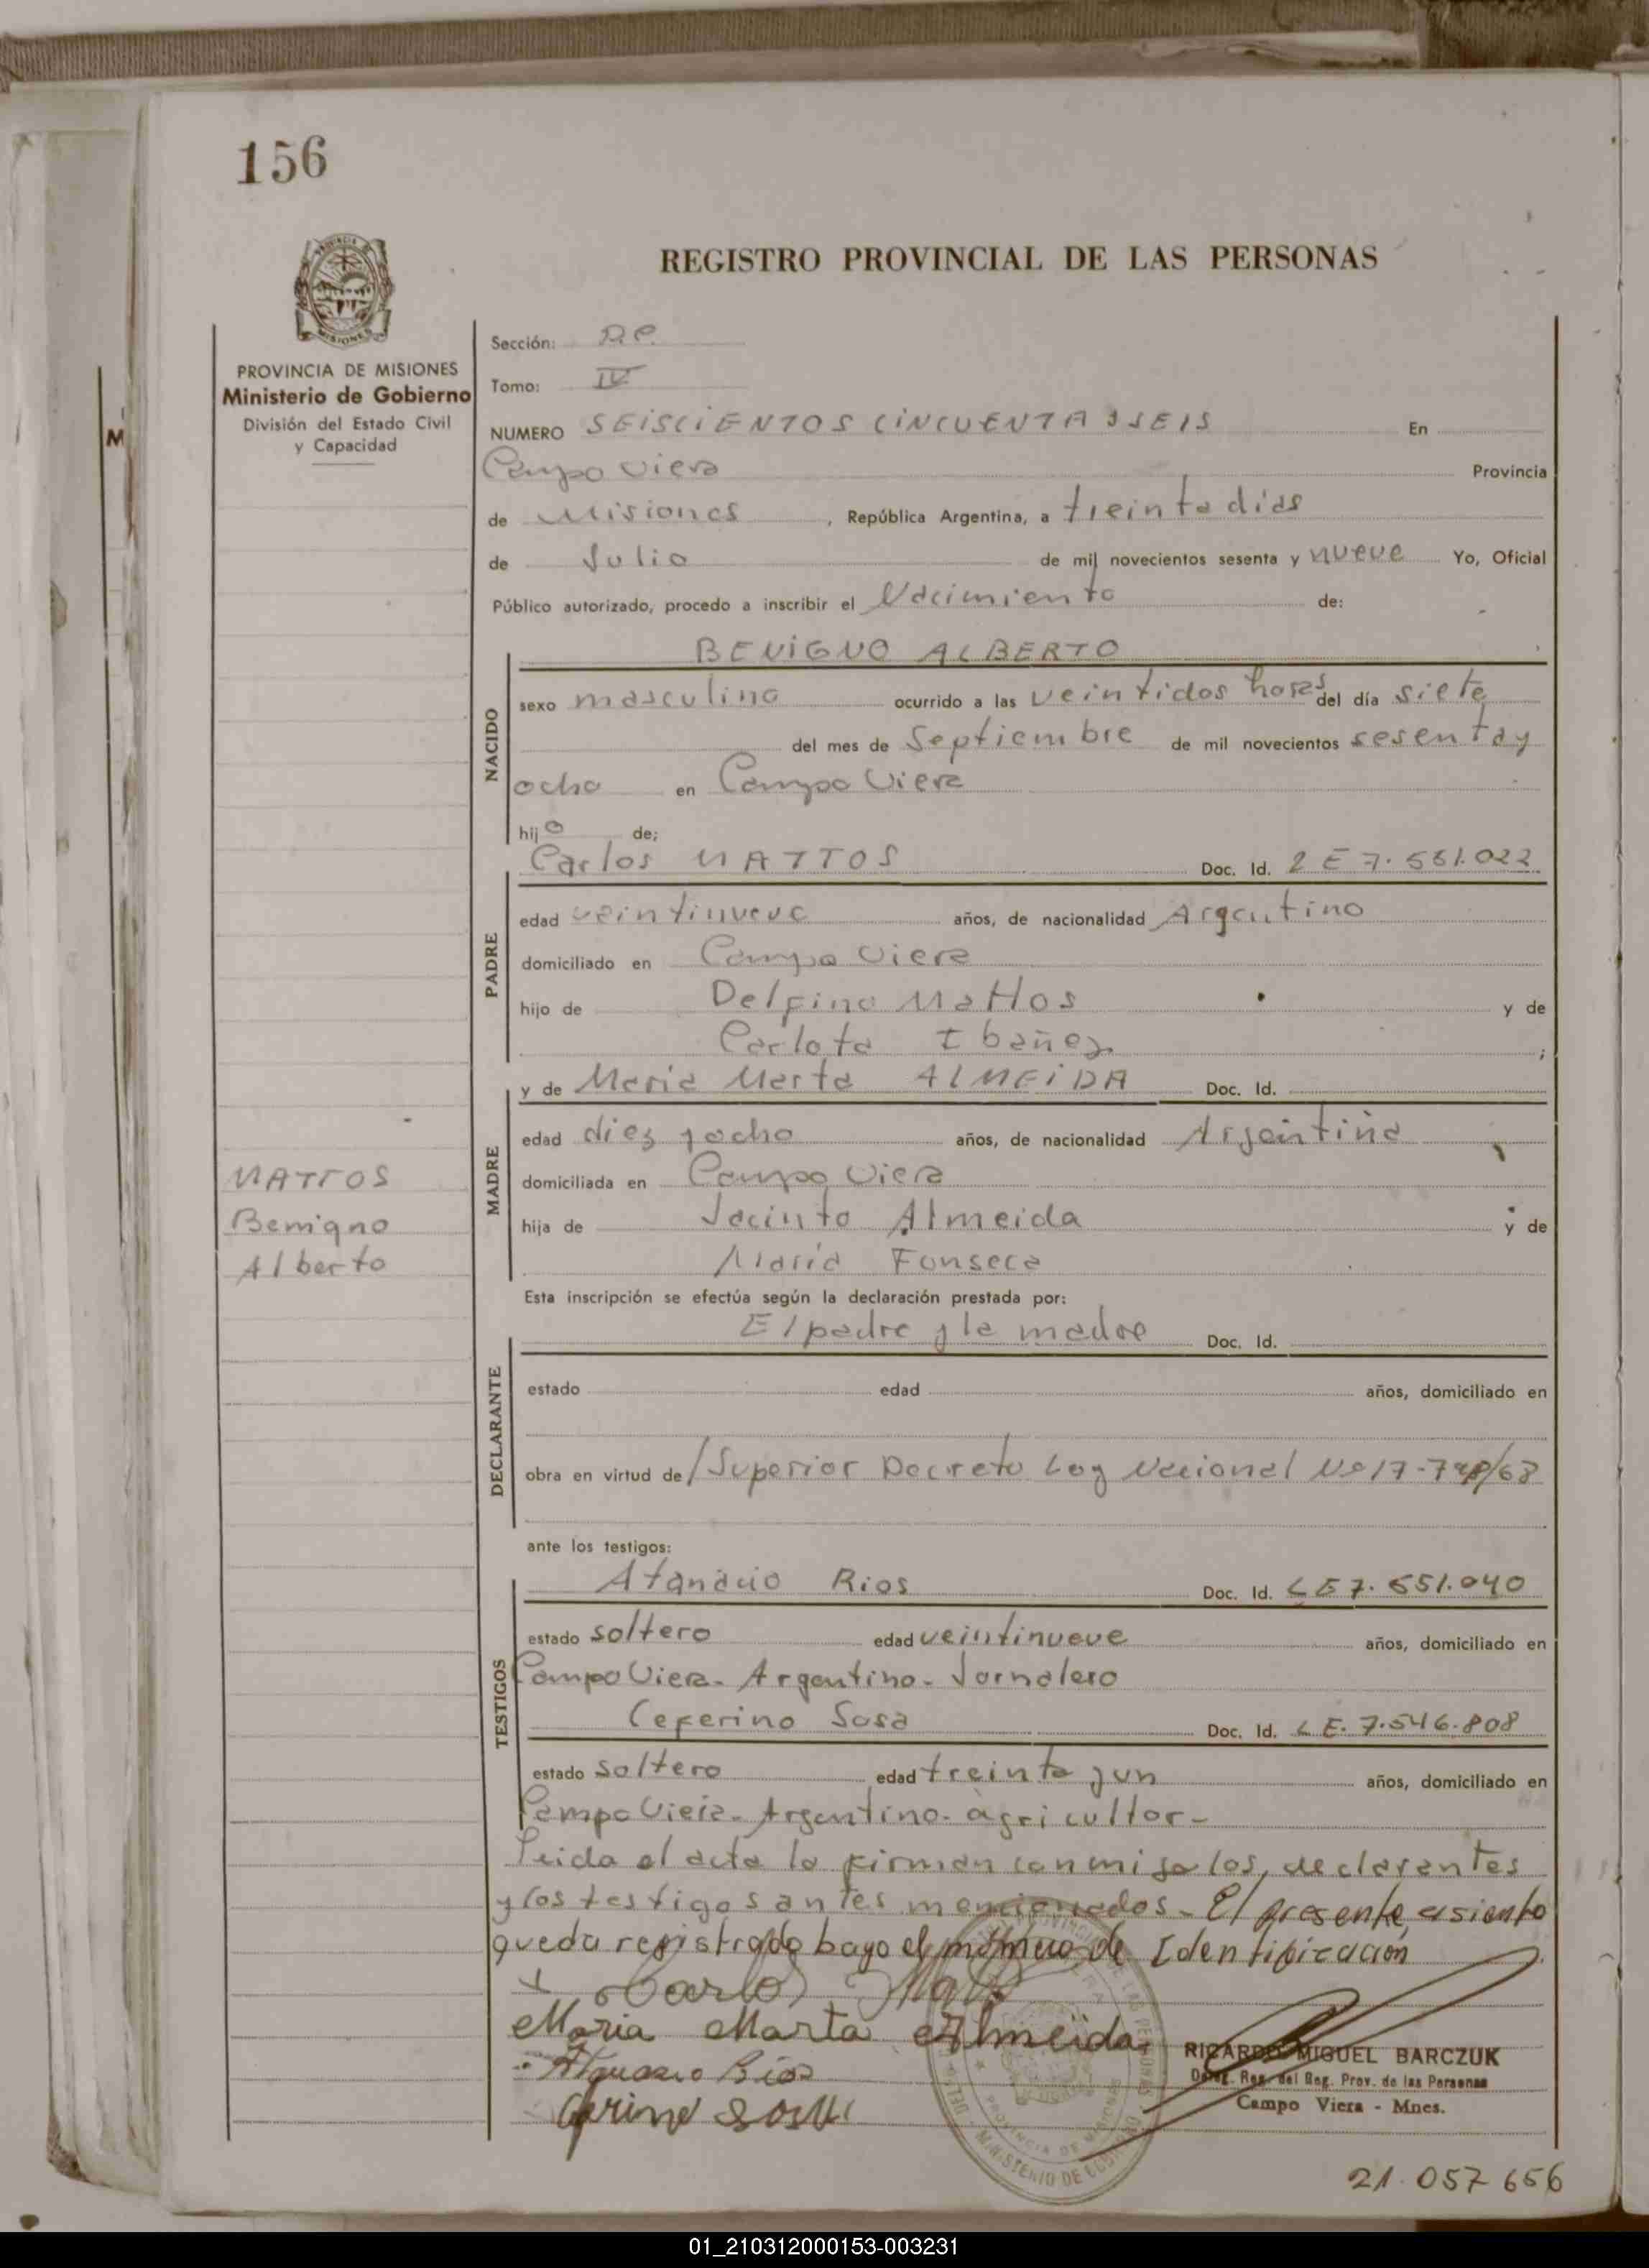 156
REGISTRO PROVINCIAL DE LAS PERSONAS
PROVINCIA DE MISIONES
Ministerio de Gobierno
División del Estado Civil
y Capacidad
MATTOS
Benigno
Alberto
Sección: D.C.
Tomo: IV
NUMERO SEISCIENTOS CINCUENTA Y SEIS En
Campo Viera Provincia
de Misiones , República Argentina, a treinta dias
de Julio de mil novecientos sesenta y nueve Yo, Oficial
Público autorizado, procedo a inscribir el Nacimiento de:
BENIGNO ALBERTO
NACIDO
sexo masculino ocurrido a las veintidos horas del día siete
del mes de Septiembre de mil novecientos sesenta y
ocho en Campo Viera
hijo de;
Carlos MATTOS Doc. Id. L E 7.551.022
PADRE
edad veintinueve años, de nacionalidad Argentino
domiciliado en Campo Viera
hijo de Delfino Mattos y de
Carlota Ibañez ;
y de Maria Marta ALMEIDA Doc. Id.
MADRE
edad diez y ocho años, de nacionalidad Argentina
domiciliada en Campo Viera
hija de Jacinto Almeida y de
María Fonseca
Esta inscripción se efectúa según la declaración prestada por:
El padre y la madre Doc. Id.
DECLARANTE
estado edad años, domiciliado en
obra en virtud de/Superior Decreto Ley Nacional Nº 17-
ante los testigos:
Atanacio Rios Doc. Id. LE 7.551.040
TESTIGOS
estado soltero edad veintinueve años, domiciliado en
Campo Viera- Argentino- Jornalero
Ceferino Sosa Doc. Id. L E. 7.546.808
estado soltero edad treinta y un años, domiciliado en
Campo Viera- Argentino- agricultor-
Leida el acta la firman conmigo los declarantes
y los testigos antes mencionados- El presente asiento
queda registrado bayo el número de Identificación
x Carlos
Maria Marta Almeida
Rios
RICARDO MIGUEL BARCZUK
Deleg. Reg. del Reg. Prov. de las Personas
Campo Viera - Mnes.
21.057 656
01_210312000153-003231